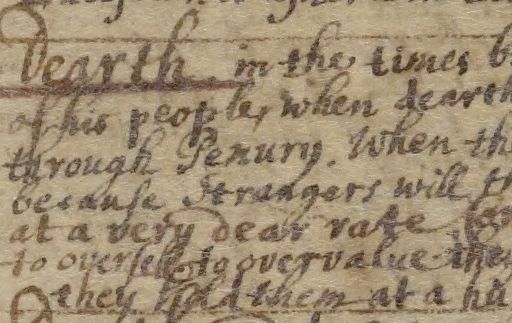 Dearth. in the times
of his people, when dearth
through Penury. When the
because Strangers will
at a very dear rate.
to oversell, to overvalue
they hold them at a